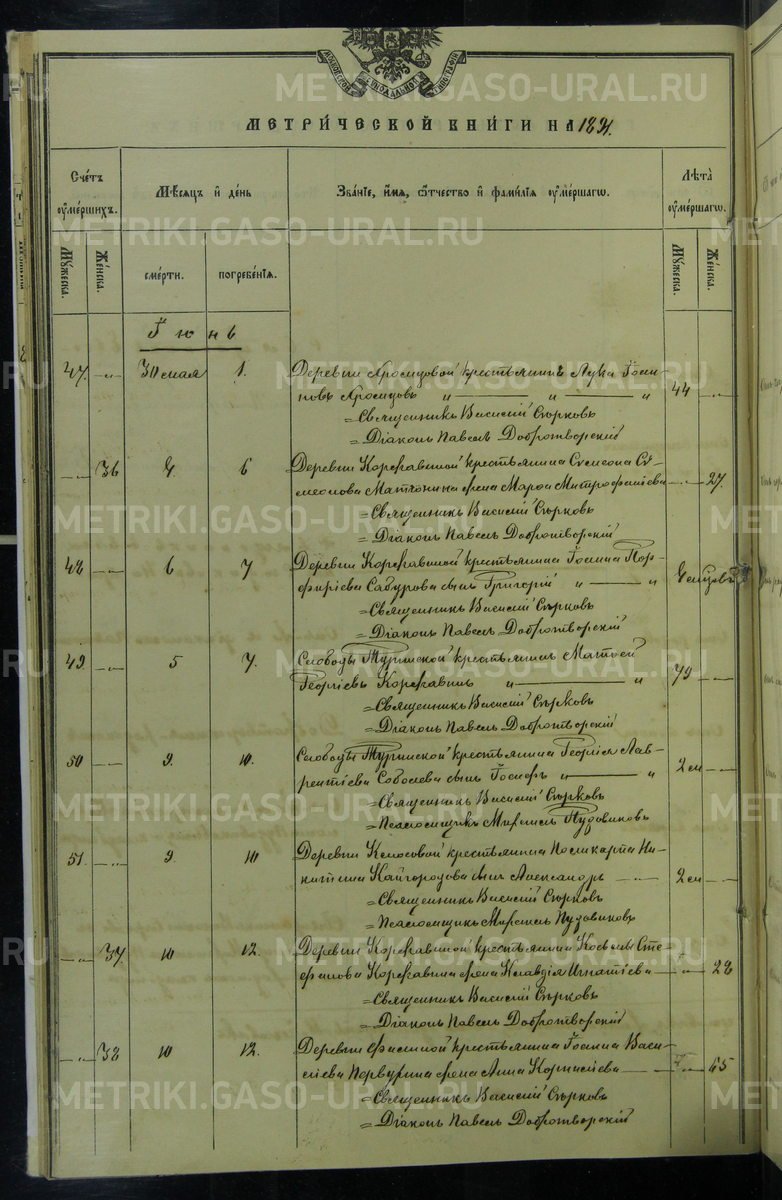 МОСКОВСКОЙ СѴНОДАЛЬНОЙ ТИПОГРАФІИ
METRIKI.GASO-URAL.RU
МЕТРИ́ЧЕСКОЙ КНИ́ГИ НА 1891.
Сче́тъ ᲂу҆ме́ршихъ.
Мѣ́сяцъ и҆ де́нь
Зва́нїе, и҆́мя, ѻ҆́тчество и҆ фами́лїя ᲂу҆ме́ршагѡ.
Лѣ̀та ᲂу҆ме́ршагѡ.
Му́жеска.
Же́нска.
сме́рти.
погребе́нїя.
Му́жеска.
Же́нска.
Іюнь
47. 30 мая 1. Деревни крестьянинъ Лука Іоан-
новъ 44
=Священникъ Василій Сѣрковъ
=Діаконъ Павелъ Добротворскій
36 4. 6 Деревни Коржавиной крестьянина Сѵмеона Сѵ-
меонова жена Марѳа Митрофанiева 27.
=Священникъ Василій Сѣрковъ
=Діаконъ Павелъ Добротворскій
48 6 7 Деревни Коржавиной крестьянина Іоанна Пор-
фиріева Сабурова сынъ Григорій
=Священникъ Василій Сѣрковъ
=Діаконъ Павелъ Добротворскій
49 5 7. Слободы Туринской крестьянинъ Матѳей
Георгіевъ Коржавинъ 79
=Священникъ Василій Сѣрковъ
=Діаконъ Павелъ Добротворскій
50 9. 10. Слободы Туринской крестьянина Георгія Лав-
рентіева Соболева сынъ Іосифъ 2 м
=Священникъ Василій Сѣрковъ
=Псаломщикъ Михаилъ Пудовиковъ
51. 9. 10 Деревни крестьянина Поликарпа Ни-
китина Кайгородова сынъ Александръ 2 м
=Священникъ Василій Сѣрковъ
=Псаломщикъ Михаилъ Пудовиковъ
37. 10 12. Деревни Коржавиной крестьянина Косьмы Сте-
фанова Коржавина жена Клавдія Игнатіева 28
=Священникъ Василій Сѣрковъ
=Діаконъ Павелъ Добротворскій
38 10 12. Деревни крестьянина Іоанна Васи-
ліева Первухина жена Анна Корниліева 65
=Священникъ Василій Сѣрковъ
=Діаконъ Павелъ Добротворскій